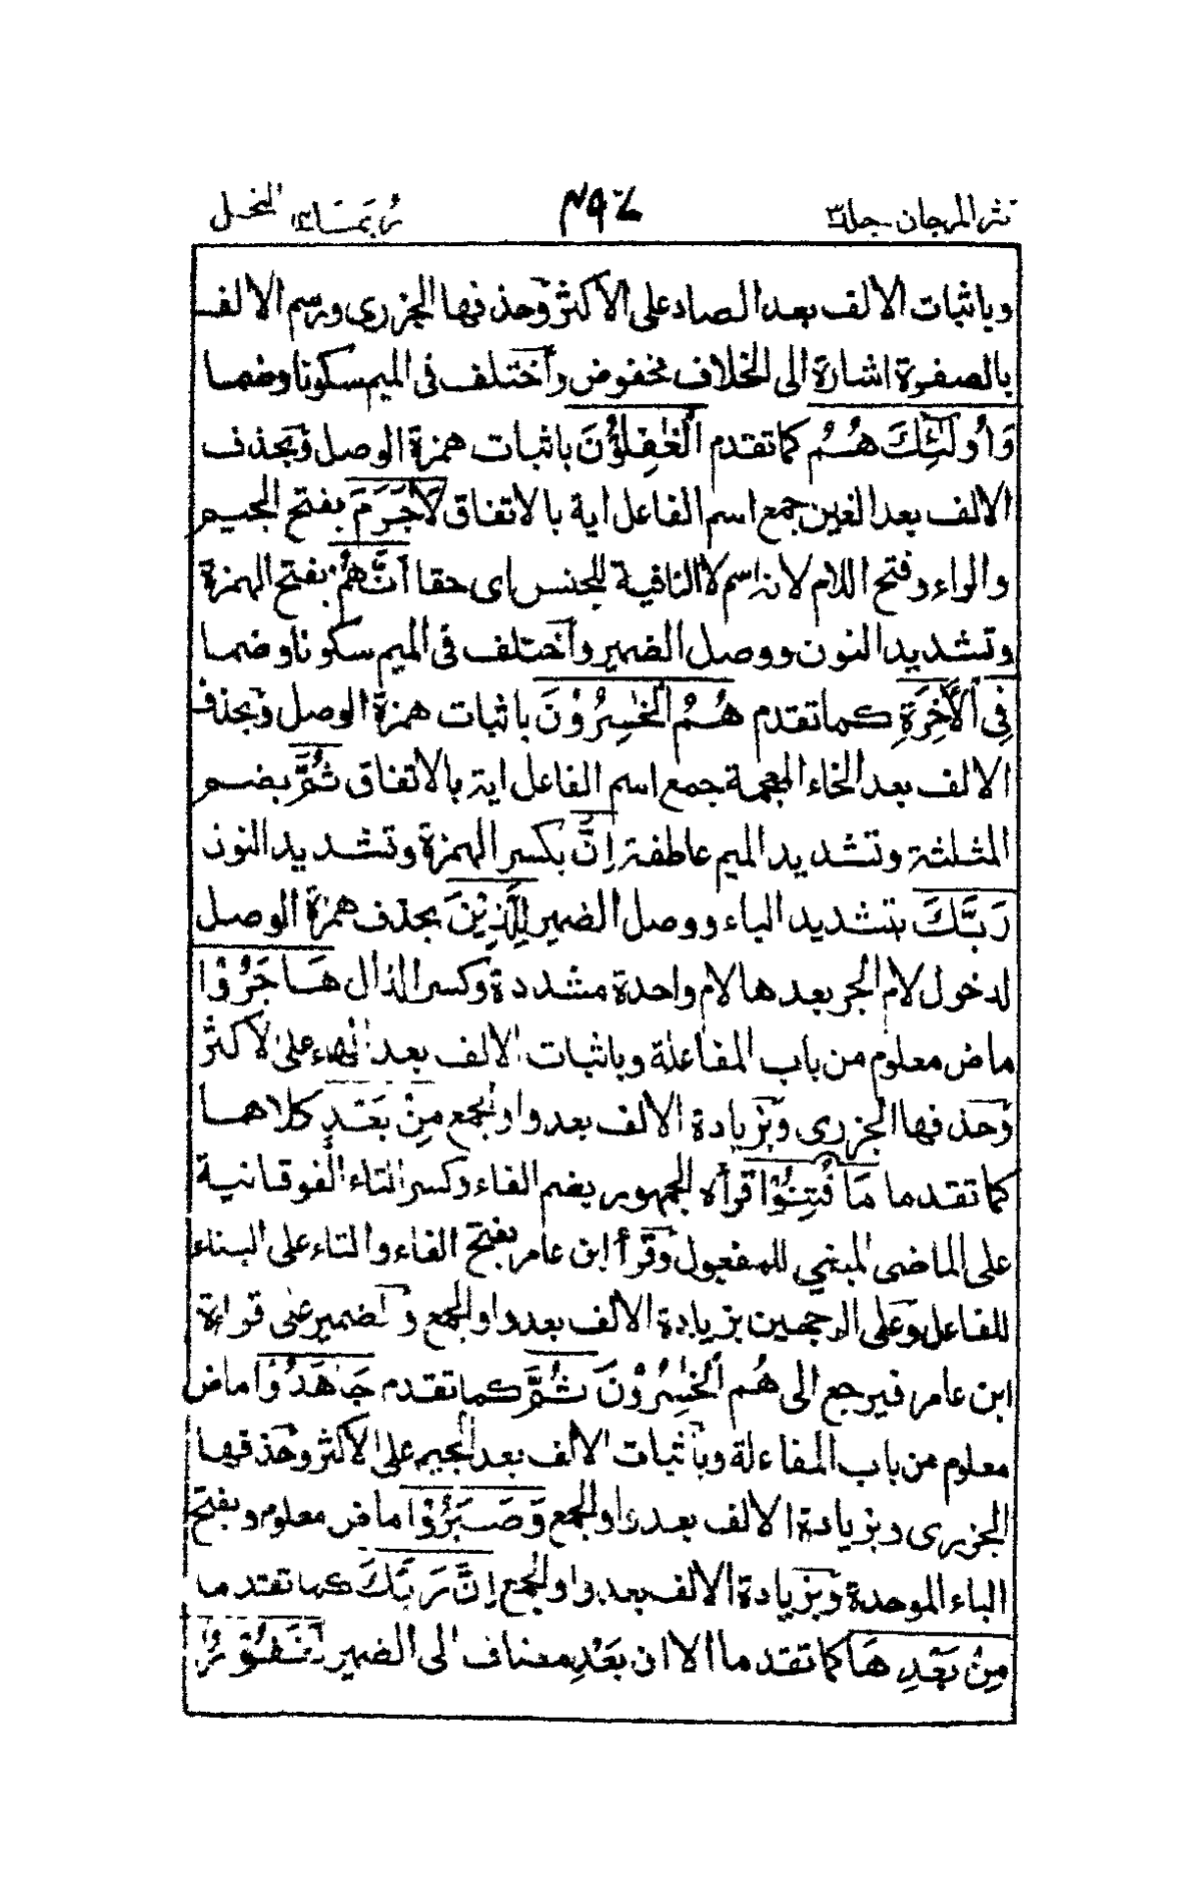 نثر المرجان جلد٣ ٤٩٦ ربما١٤ النحل
وباثبات الالف بعد الصاد على الاكثر وحذفها الجزرى ورسم الالف
بالصفرة اشارة الى الخلاف مخفوض واختلف فى الميم سكونا وضما
وَاُولٰٓئِكَ هُمُ كما تقدم الْغٰفِلُوْنَ باثبات همزة الوصل وبحذف
الالف بعد الغين جمع اسم الفاعل اية بالاتفاق لَاجَرَمَ بفتح الجيم
والراء وفتح اللام لانه اسم لا النافية للجنس اى حقا اَنَّهُمْ بفتح الهمزة
وتشديد النون ووصل الضمير واختلف فى الميم سكونا وضما
فِى الْاٰخِرَةِ كما تقدم هُمُ الْخٰسِرُوْنَ باثبات همزة الوصل وبحذف
الالف بعد الخاء المعجمة جمع اسم الفاعل اية بالاتفاق ثُمَّ بضم
المثلثة وتشديد الميم عاطفة اِنَّ بكسر الهمزة وتشديد النون
رَبَّكَ بتشديد الباء ووصل الضمير لِلَّذِيْنَ بحذف همزة الوصل
لدخول لام الجر بعدها لام واحدة مشددة وكسر الذال هَاجَرُوْا
ماض معلوم من باب المفاعلة وباثبات الالف بعد الهاء على الاكثر
وحذفها الجزرى وبزيادة الالف بعد واو الجمع مِنْ بَعْدِ كلاهما
كما تقدما مَا فُتِنُوْا قرأه الجمهور بضم الفاء وكسر التاء الفوقانية
على الماضى المبني للمفعول وقرأ ابن عامر بفتح الفاء والتاء على البناء
للفاعل وعلى الوجهين بزيادة الالف بعد واو الجمع والضمير على قراءة
ابن عامر فيرجع الى هُمُ الْخٰسِرُوْنَ ثُمَّ كما تقدم جَاهَدُوْا ماض
معلوم من باب المفاعلة وباثبات الالف بعد الجيم على الاكثر وحذفها
الجزرى وبزيادة الالف بعد واو الجمع وَصَبَرُوْا ماض معلوم وبفتح
الباء الموحدة وبزيادة الالف بعد واو الجمع اِنَّ رَبَّكَ كما تقدما
مِنْ بَعْدِهَا كما تقدما الا ان بَعْدِ مضاف الى الضمير لَغَفُوْرٌ